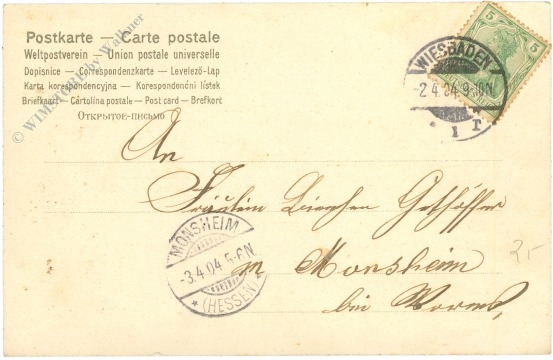 Postkarte — Carte postale
Weltpostverein — Union postale universelle
Dopisnice — Correspondenzkarte — Levelező-Lap
Karta korespondencyjna — Korespondenční lístek
Briefkaart — Cartolina postale — Post card — Brefkort
ОТКРЫТОЕ-ПИСЬМО
© WIMSTORE by Wallner
5 5
WIESBADEN
-2.4.04. 9-10N.
* 1 T
An
Fräulein
in Monsheim
bei Worms,
MONSHEIM
-3.4.04 5-6N
* (HESSEN)